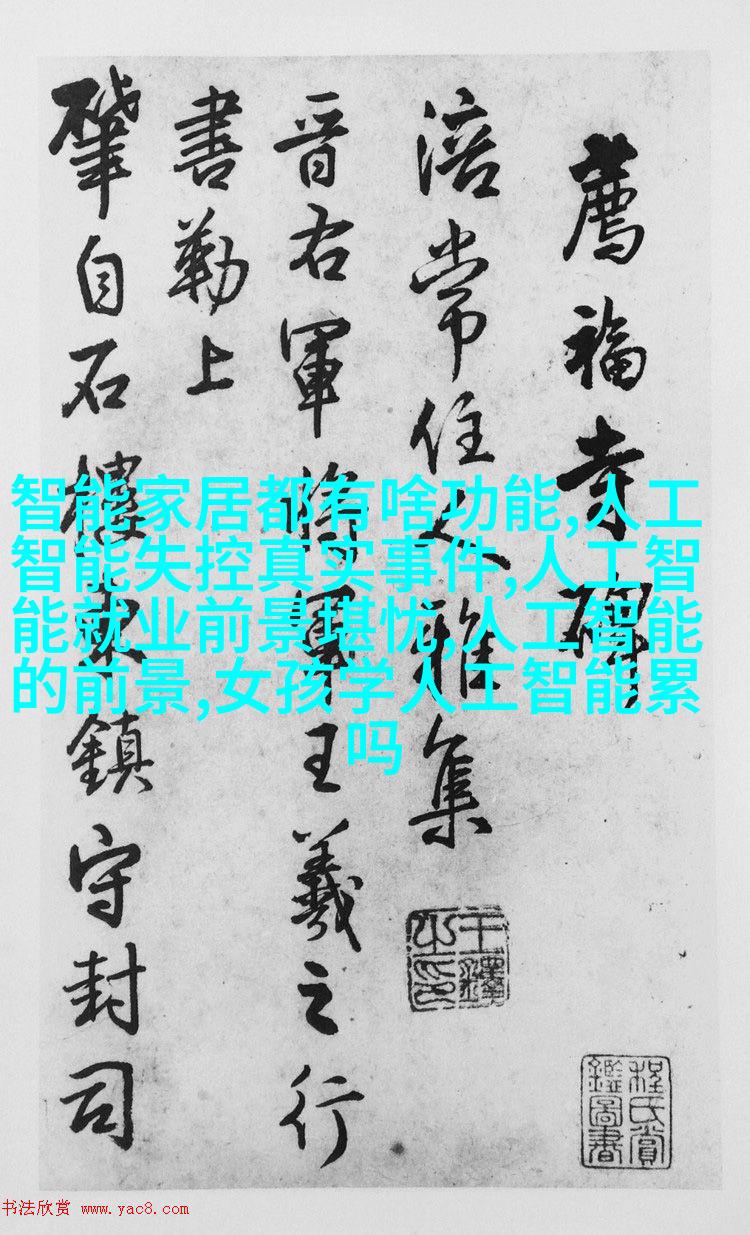 薦福寺碑
涪常住人雅集
王鐸之印
晋右軍將軍王羲之行
書勒上
肇自石樓東鎮守封司
程氏賞鑑圖書
智能家居都有啥功能,人工
智能失控真实事件,人工智
能就业前景堪忧,人工智能
的前景,女孩学人工智能累
吗
书法欣赏 www.yac8.com